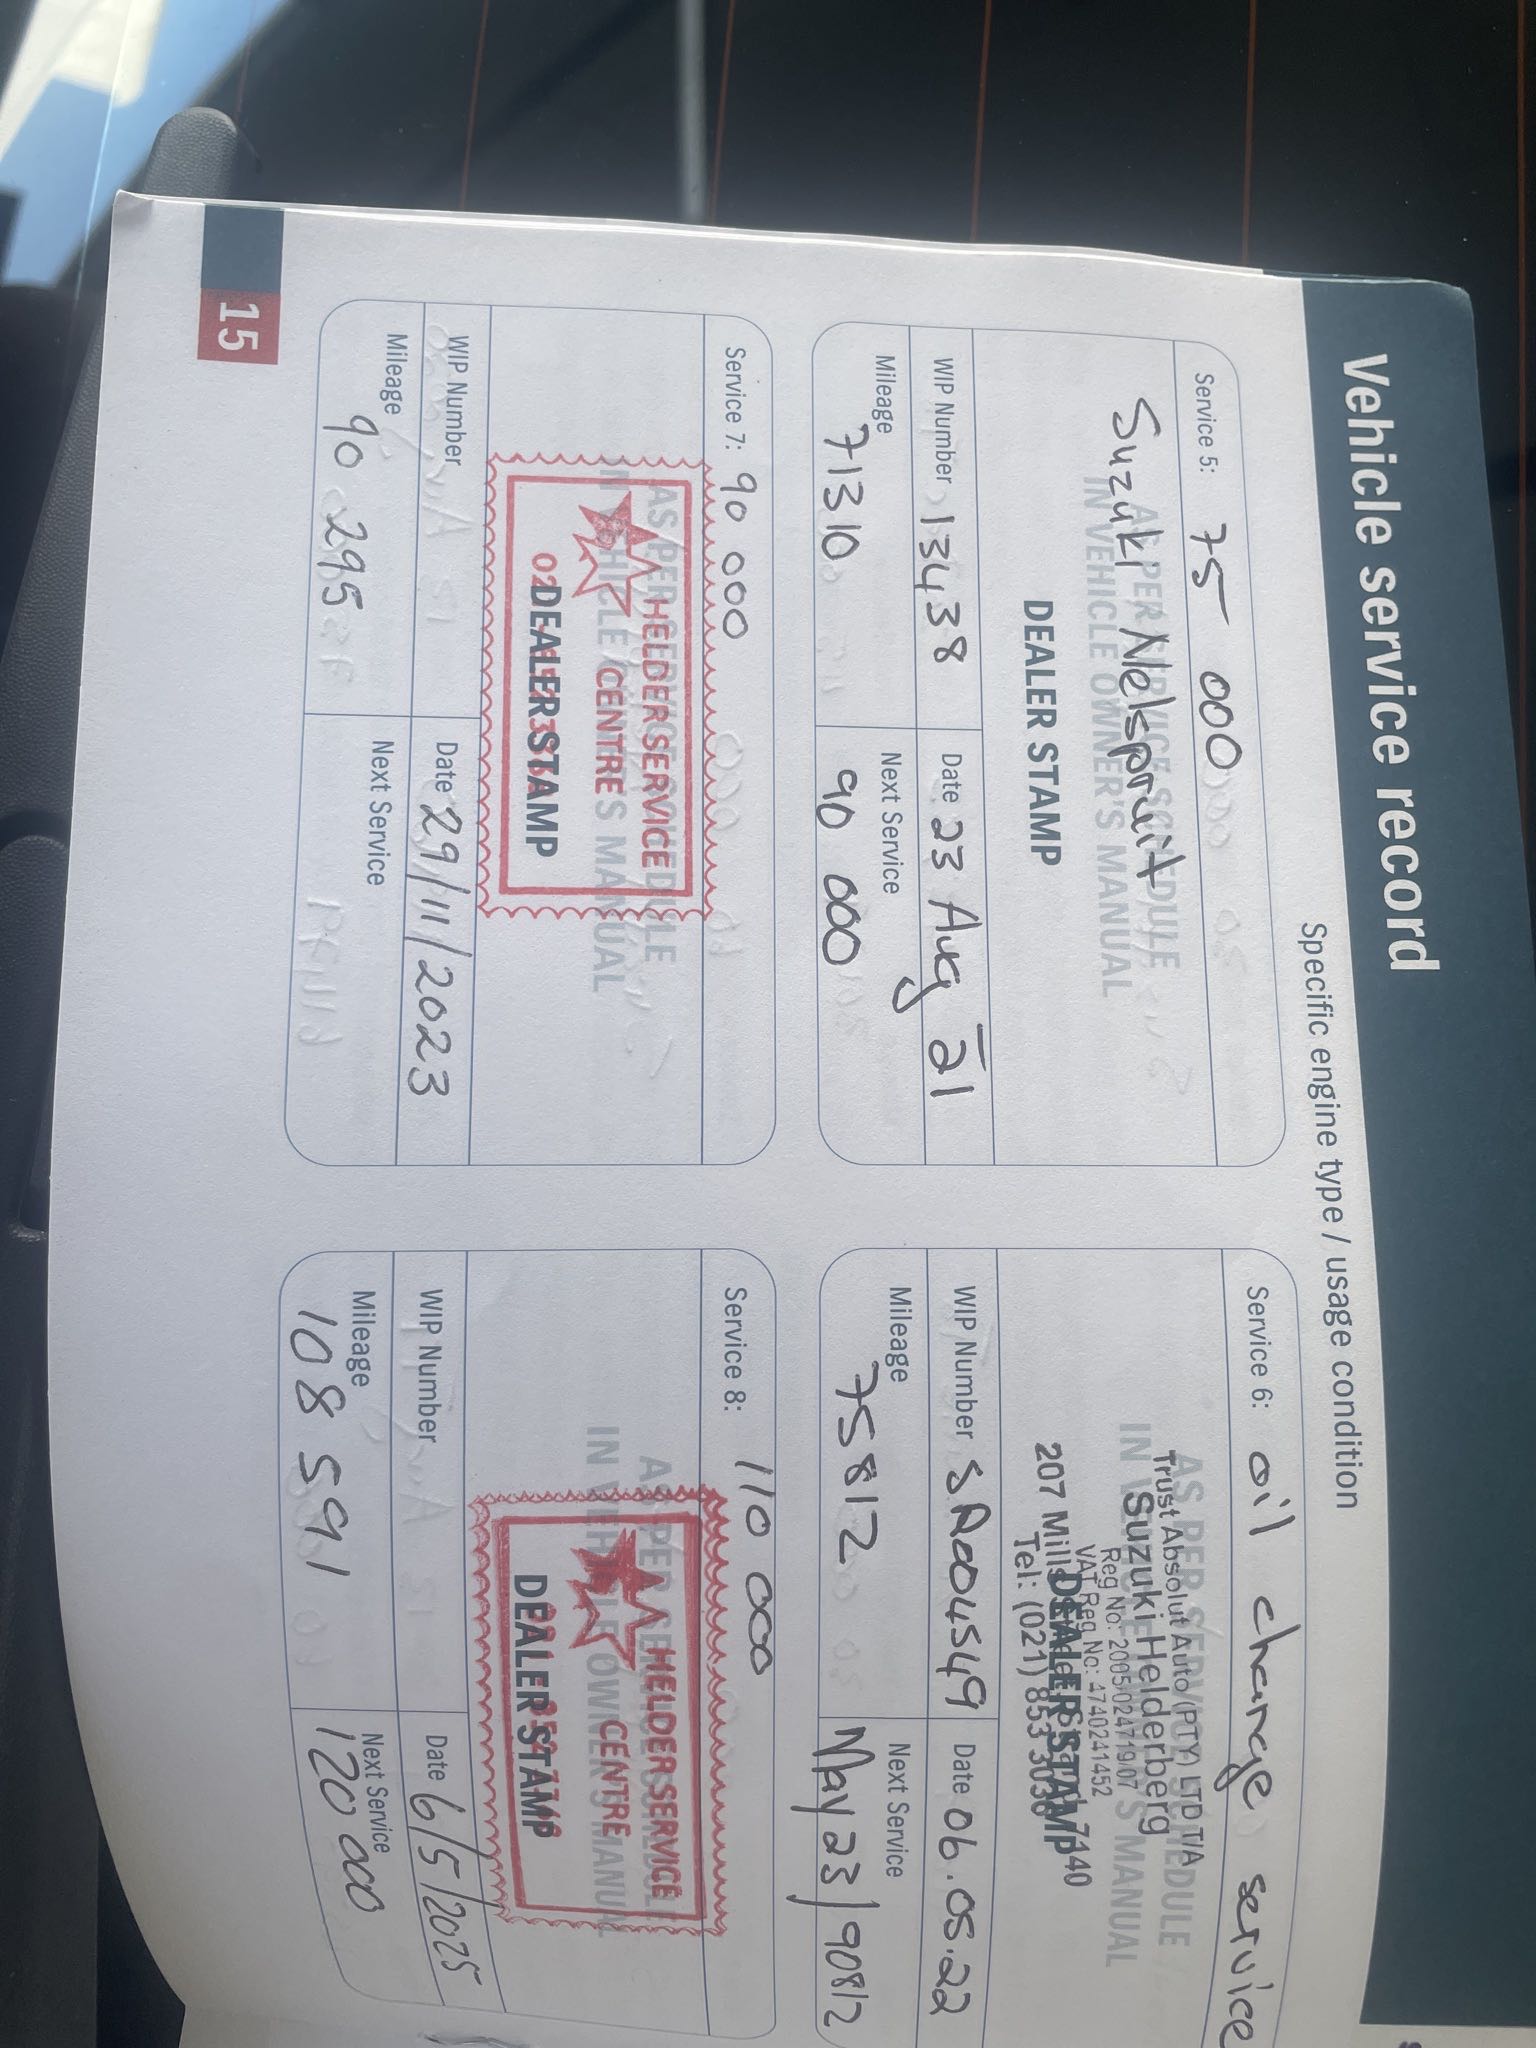 Vehicle service record
Specific engine type / usage condition
Service 5: 75 000
AS PER SERVICE SCHEDULE
IN VEHICLE OWNER'S MANUAL
Suzuki Nelspruit
DEALER STAMP
WIP Number 13438
Date 23 Aug 21
Mileage 71310
Next Service 90 000
Service 6: oil change service
AS PER SERVICE SCHEDULE
IN VEHICLE OWNER'S MANUAL
Trust Absolut Auto (PTY) LTD T/A
Suzuki Helderberg
Reg No: 2005/024719/07
VAT Reg No: 4740241452
207 Mill 7140
Tel: (021) 853 3036
DEALER STAMP
WIP Number SA004549
Date 06.05.22
Mileage 75812
Next Service May 23/90812
Service 7: 90 000
AS PER SERVICE SCHEDULE
IN VEHICLE OWNER'S MANUAL
HELDER SERVICE
CENTRE
DEALER STAMP
WIP Number
Date 29/11/2023
Mileage 90 295
Next Service
Service 8: 110 000
AS PER SERVICE SCHEDULE
IN VEHICLE OWNER'S MANUAL
HELDER SERVICE
CENTRE
DEALER STAMP
WIP Number
Date 6/5/2025
Mileage 108 591
Next Service 120 000
15